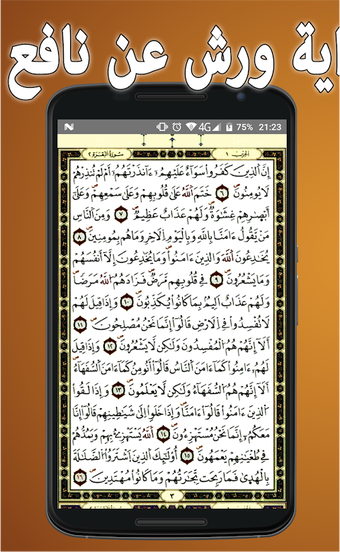 ـاية ورش عن نافع
4G 75% 21:23
الحزب ١ سورة البقرة ٢
إِنَّ ٱلذِينَ كَفَرُوا۟ سَوَآءٌ عَلَيْهِمُۥٓ ءَآنذَرْتَهُمُۥٓ أَمْ لَمْ تُنذِرْهُمْ
لَا يُومِنُونَ ٦ خَتَمَ ٱللَّهُ عَلَىٰ قُلُوبِهِمْ وَعَلَىٰ سَمْعِهِمْ وَعَلَىٰٓ
أَبْصَٰرِهِمْ غِشَٰوَةٌ وَلَهُمْ عَذَابٌ عَظِيمٌ ٧ وَمِنَ ٱلنَّاسِ
مَنْ يَّقُولُ ءَامَنَّا بِاللَّهِ وَبِالْيَوْمِ ٱلَاخِرِ وَمَا هُم بِمُومِنِينَ ٨
يُخَٰدِعُونَ ٱللَّهَ وَٱلذِينَ ءَامَنُوا۟ وَمَا يُخَٰدِعُونَ إِلَّآ أَنفُسَهُمْ
وَمَا يَشْعُرُونَ ٩ فِے قُلُوبِهِم مَّرَضٌ فَزَادَهُمُ ٱللَّهُ مَرَضًا
وَلَهُمْ عَذَابٌ أَلِيمٌ بِمَا كَانُوا۟ يُكَذِّبُونَ ١٠ وَإِذَا قِيلَ لَهُمْ
لَا تُفْسِدُوا۟ فِے ٱلَارْضِ قَالُوٓا۟ إِنَّمَا نَحْنُ مُصْلِحُونَ ١١
أَلَآ إِنَّهُمْ هُمُ ٱلْمُفْسِدُونَ وَلَٰكِن لَّا يَشْعُرُونَ ١٢ وَإِذَا قِيلَ
لَهُمُۥٓ ءَامِنُوا۟ كَمَآ ءَامَنَ ٱلنَّاسُ قَالُوٓا۟ أَنُومِنُ كَمَآ ءَامَنَ ٱلسُّفَهَآءُ
أَلَآ إِنَّهُمْ هُمُ ٱلسُّفَهَآءُ وَلَٰكِن لَّا يَعْلَمُونَ ١٣ وَإِذَا لَقُوا۟
ٱلذِينَ ءَامَنُوا۟ قَالُوٓا۟ ءَامَنَّا وَإِذَا خَلَوِا۟ اِلَىٰ شَيَٰطِينِهِمْ قَالُوٓا۟ إِنَّا
مَعَكُمُۥٓ إِنَّمَا نَحْنُ مُسْتَهْزِءُونَ ١٤ ٱللَّهُ يَسْتَهْزِئُ بِهِمْ وَيَمُدُّهُمْ
فِے طُغْيَٰنِهِمْ يَعْمَهُونَ ١٥ أُو۟لَٰٓئِكَ ٱلذِينَ ٱشْتَرَوُا۟ ٱلضَّلَٰلَةَ
بِالْهُدَىٰ فَمَا رَبِحَت تِّجَٰرَتُهُمْ وَمَا كَانُوا۟ مُهْتَدِينَ ١٦
٣